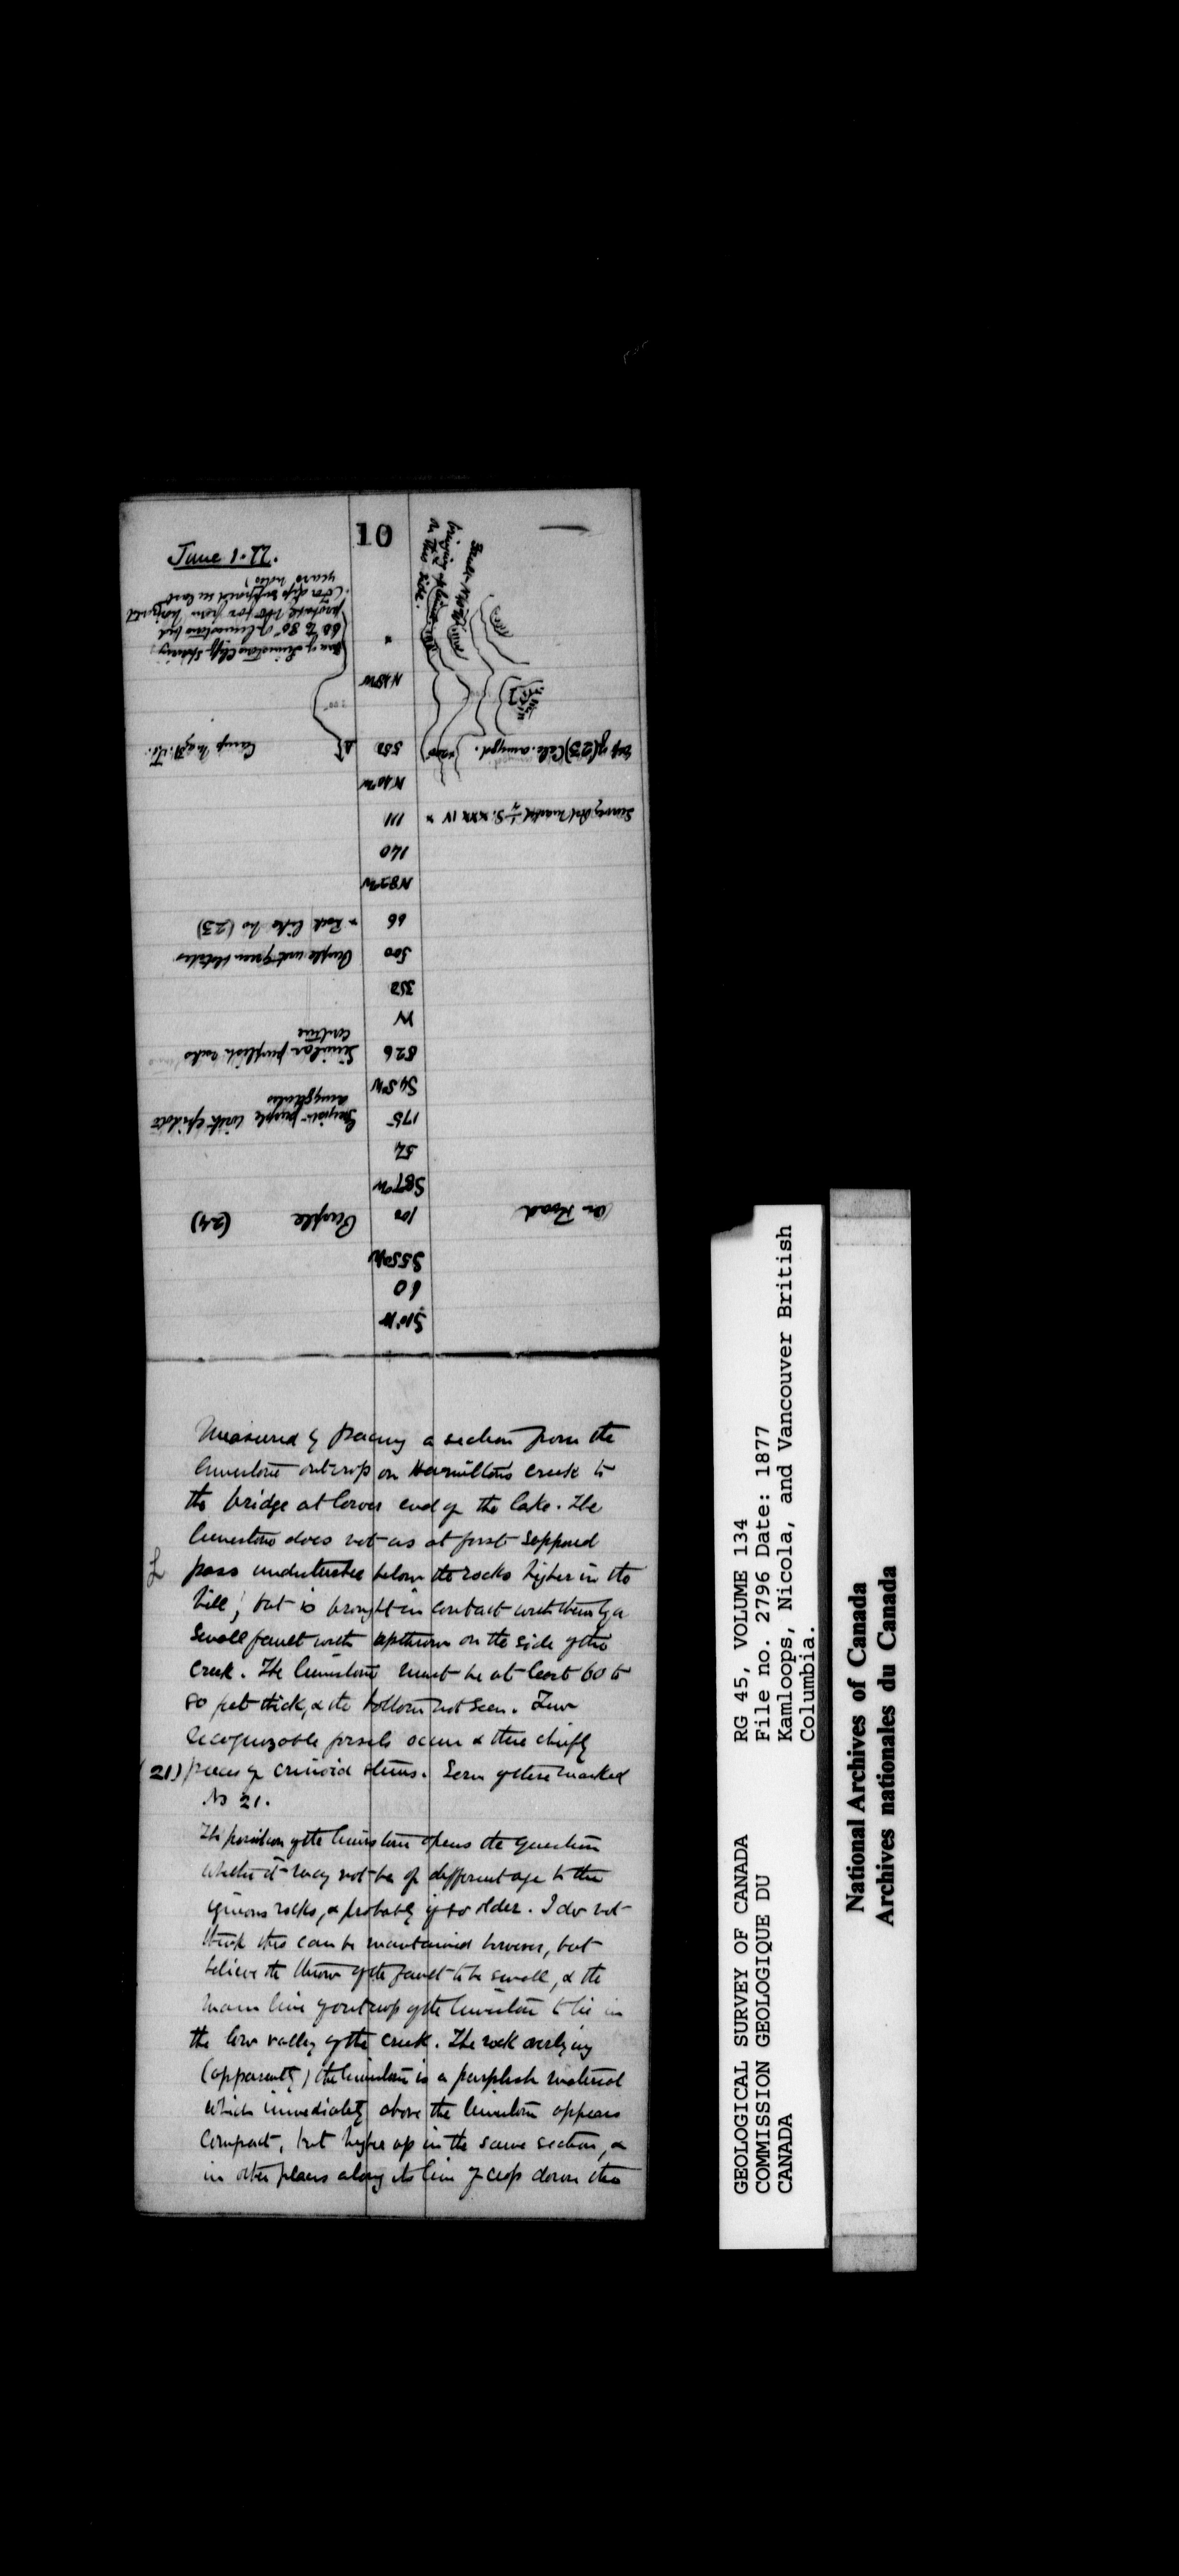 10
June 1. 77.
area of Limestone Cliff showing
60 to 80° of limestone bed
probably not far from horizontal
(For dips supposed see last
years notes)
Fault
bringing
on this side.
N18W
Camp
550
(23) Calc. amygd.
N40W
111
Survey Post marked ¼ S. XXXIV x
140
N82W
66
x Rock like No (23)
500
Purple and green
350
W
526
Similar purplish rocks
continue
S45W
175
Greyish purple with epidote
amygdules
54
S87W
100
Purple (24)
On Road
S55W
60
S10W
Measured by pacing a section from the
limestone outcrop on Hamilton's creek to
the bridge at lower end of the lake. The
limestone does not as at first supposed
pass undisturbed below the rocks higher in the
hill, but is brought in contact with them by a
small fault with upthrow on the side of the
creek. The limestone must be at least 60 to
80 feet thick, & the bottom not seen. Few
recognizable fossils occur & these chiefly
(21) pieces of crinoid stems. Some of these marked
No 21.
The position of the limestone opens the question
whether it may not be of different age to the
igneous rocks, & probably if so older. I do not
think this can be maintained however, but
believe the throw of the fault to be small, & the
main line of outcrop of the limestone to lie in
the low valley of the creek. The rock overlying
(apparently) the limestone is a purplish material
which immediately above the limestone appears
compact, but higher up in the same section, &
in other places along its line of crop down the
GEOLOGICAL SURVEY OF CANADA
COMMISSION GEOLOGIQUE DU
CANADA
RG 45, VOLUME 134
File no. 2796 Date: 1877
Kamloops, Nicola, and Vancouver British
Columbia.
National Archives of Canada
Archives nationales du Canada